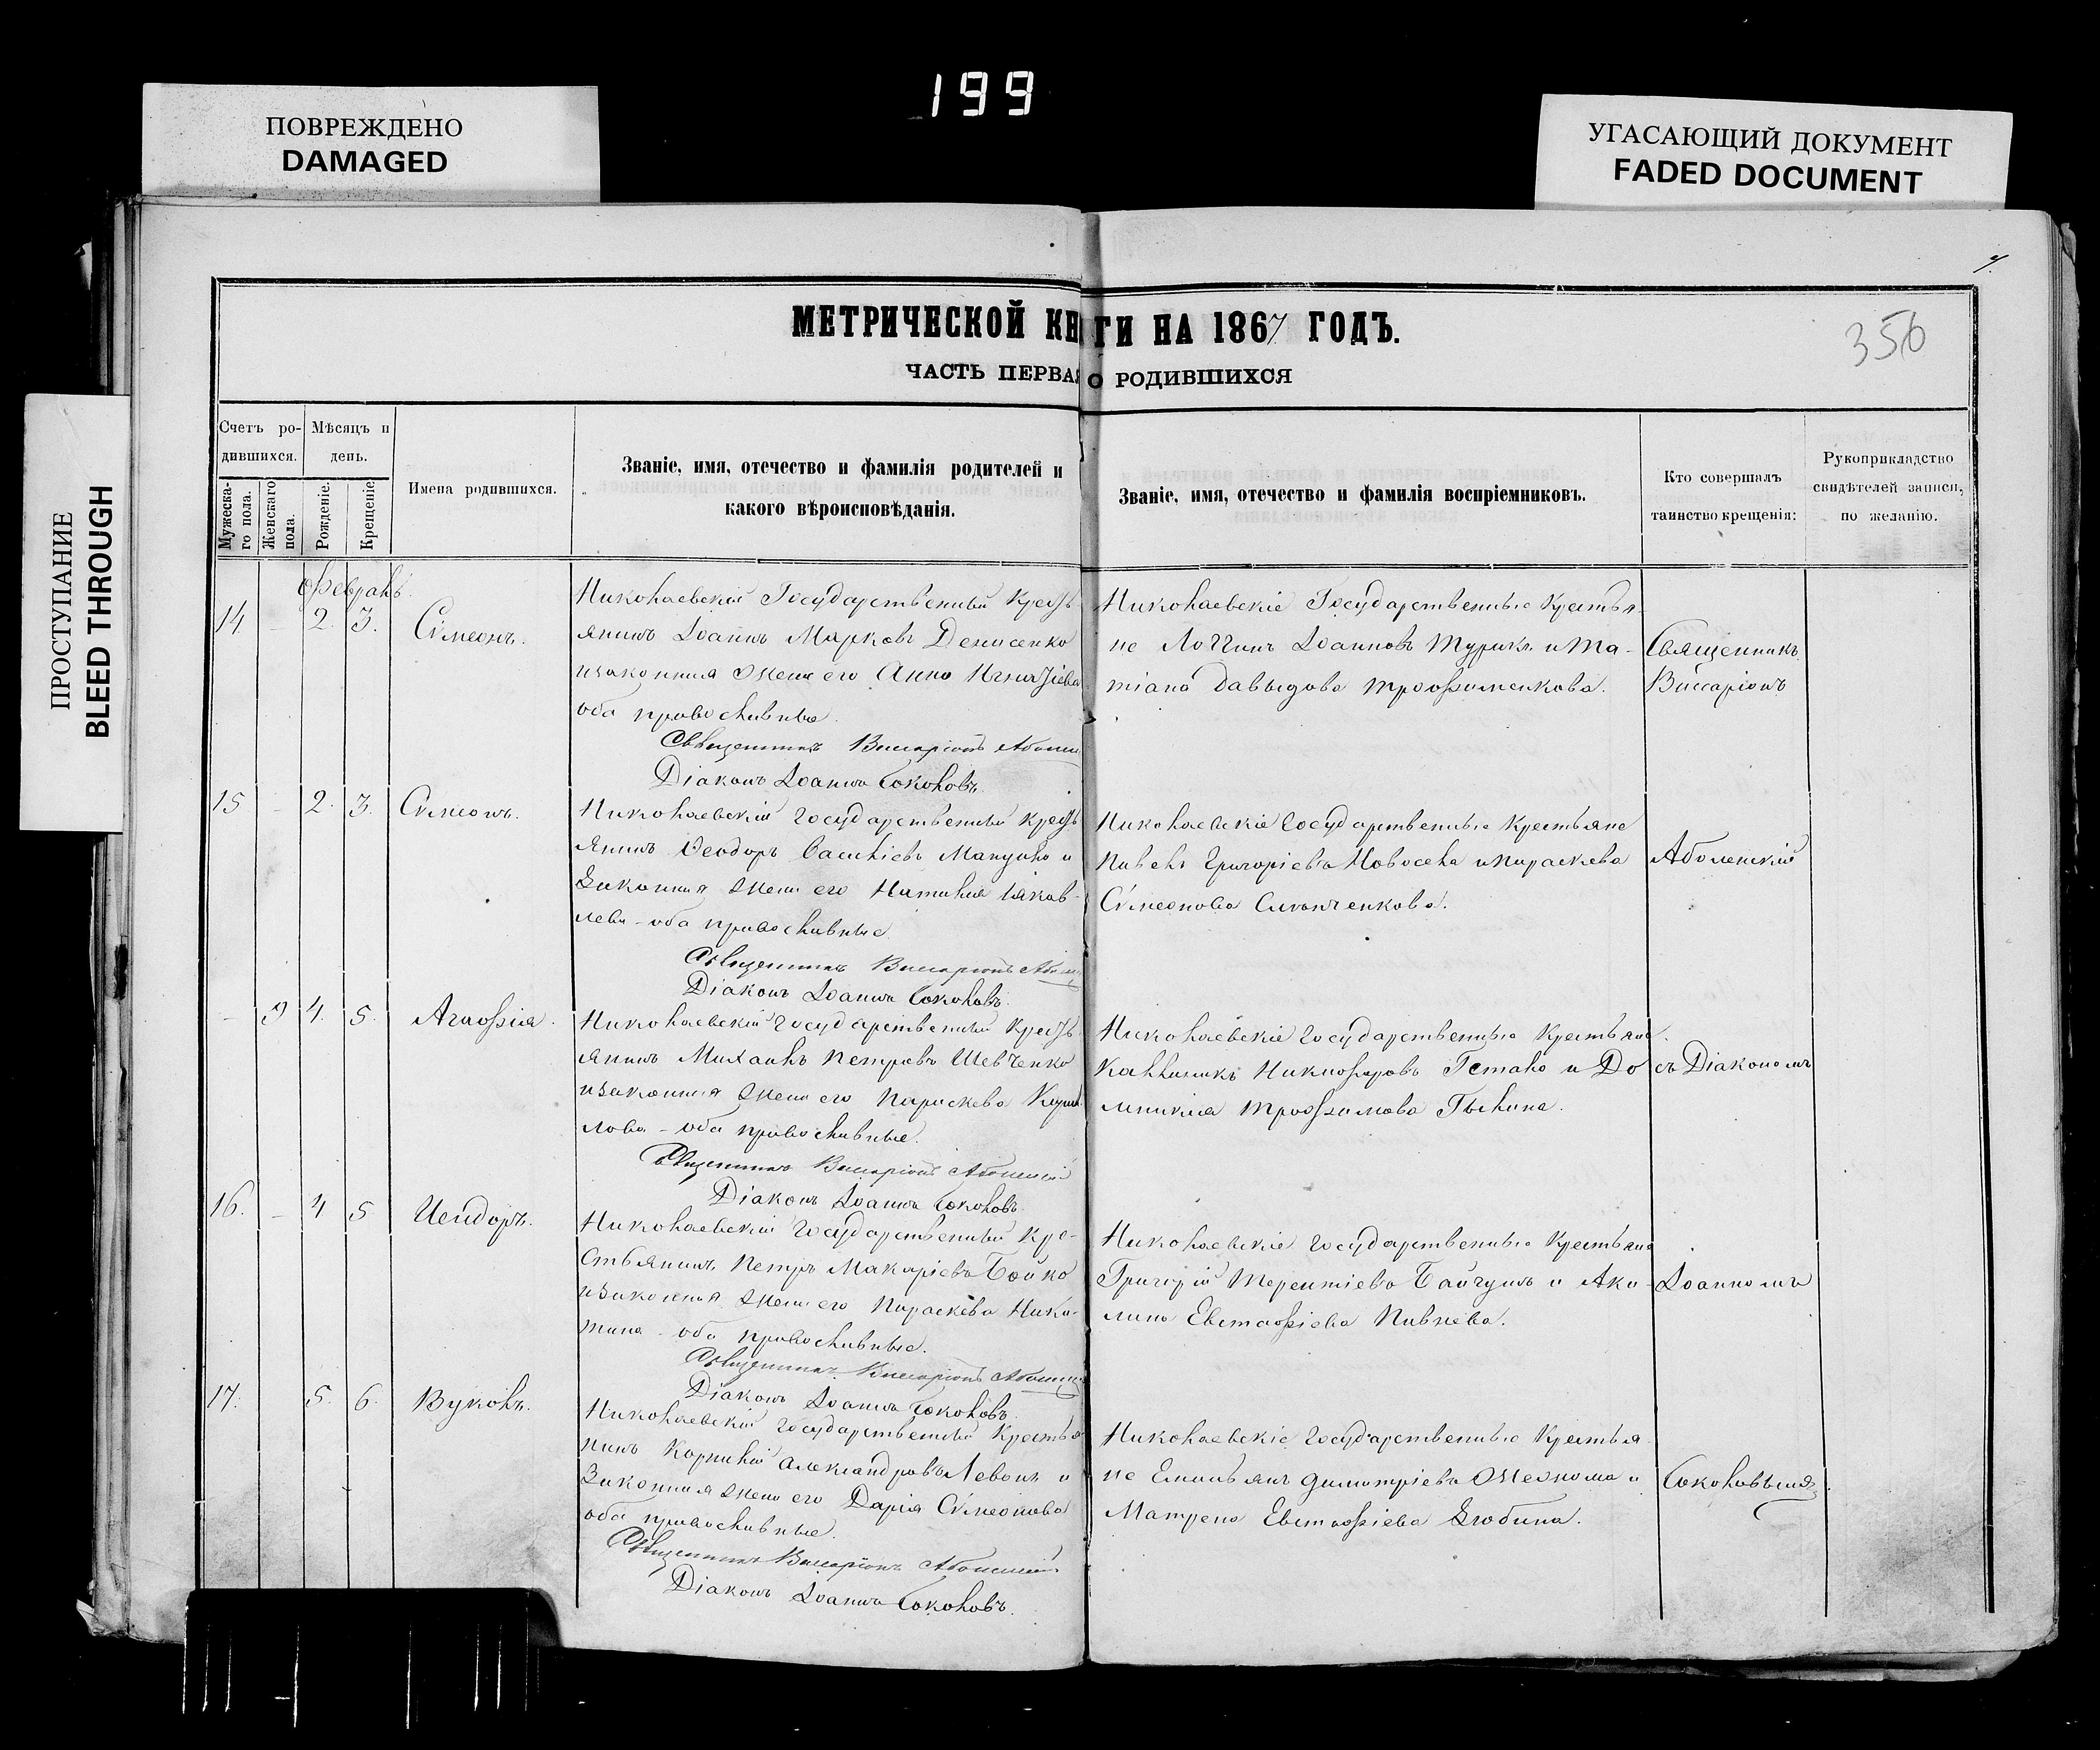 199
ПОВРЕЖДЕНО
DAMAGED
УГАСАЮЩИЙ ДОКУМЕНТ
FADED DOCUMENT
ПРОСТУПАНИЕ
BLEED THROUGH
356
МЕТРИЧЕСКОЙ КНИГИ НА 1867 ГОДЪ.
ЧАСТЬ ПЕРВАЯ О РОДИВШИХСЯ
Счетъ ро-
дившихся.
Мужеска-
го пола.
Женскаго
пола.
Мѣсяцъ и
день.
Рожденіе.
Крещеніе.
Имена родившихся.
Званіе, имя, отечество и фамилія родителей и
какого вѣроисповѣданія.
Званіе, имя, отечество и фамилія воспріемниковъ.
Кто совершалъ
таинство крещенія:
Рукоприкладство
свидѣтелей записи,
по желанію.
Февраль
14 - 2. 3. Сѵмеонъ.
Николаевскій Государственный Кресть
янинъ Іоаннъ Марковъ Денисенко
и законная жена его Анна Игнатіева
оба православные.
Священникъ Виссаріонъ
Діаконъ Іоаннъ Соколовъ.
Николаевскіе Государственные Крестья-
не Логгинъ Іоанновъ Турикъ и Та-
тіана Давыдова Трофименкова.
Священникъ
Виссаріонъ
15 - 2. 3. Сѵмеонъ.
Николаевскій Государственный Кресть
янинъ Ѳеодоръ Василіевъ Мануйло и
законная жена его Наталія Іаков-
лева - оба православные
Священникъ Виссаріонъ
Діаконъ Іоаннъ Соколовъ.
Николаевскіе Государственные Крестьяне
Павелъ Григоріевъ Новосела и Параскева
Сѵмеонова
Аболенскій
- 9 4. 5. Агафія.
Николаевскій Государственный Кресть
янинъ Михаилъ Петровъ Шевченко
и законная жена его Параскева Кирил
лова - оба православные.
Священникъ Виссаріонъ Аболенскій
Діаконъ Іоаннъ Соколовъ.
Николаевскіе Государственные Крестьяне.
Каллиникъ Никифоровъ Гетало и До
мникія Трофимова
съ Діакономъ
16. - 4 5 Исидоръ.
Николаевскій Государственный Кре-
стьянинъ Петръ Макаріевъ Бойко
и законная жена его Параскева Ники-
тина - оба православные.
Священникъ Виссаріонъ
Діаконъ Іоаннъ Соколовъ.
Николаевскіе Государственные Крестьяне
Григорій Терентіевъ и Аки-
лина Евстафіева Пивнева.
Іоанномъ
17. 5. 6. Вуколъ.
Николаевскій Государственный Крестья
нинъ Корнилій Александровъ Левонъ и
законная жена его Дарія Сѵмеонова
оба православные.
Священникъ Виссаріонъ Аболенскій
Діаконъ Іоаннъ Соколовъ.
Николаевскіе Государственные Крестья
не Емиліанъ Димитріевъ и
Матрена Евстафіева Злобина.
Соколовымъ